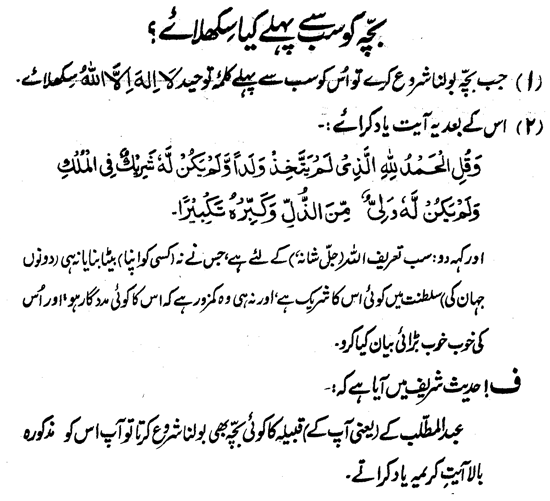 بچّہ کو سب سے پہلے کیا سکھلائے؟
(۱) جب بچّہ بولنا شروع کرے تو اُس کو سب سے پہلے کلمۂ توحید لَا اِلٰهَ اِلَّا اللّٰهُ سکھلائے۔
(۲) اس کے بعد یہ آیت یاد کرائے :-
وَقُلِ الْحَمْدُ لِلّٰهِ الَّذِیْ لَمْ یَتَّخِذْ وَلَداً وَّلَمْ یَكُنْ لَّهٗ شَرِیْكٌ فِی الْمُلْكِ
وَلَمْ یَكُنْ لَّهٗ وَلِیٌّ مِّنَ الذُّلِّ وَكَبِّرْهُ تَكْبِیْرًا۔
اور کہہ دو: سب تعریف اللہ (جلّ شانہٗ) کے لئے ہے، جس نے نہ (کسی کو اپنا) بیٹا بنایا نہ ہی (دونوں
جہان کی) سلطنت میں کوئی اس کا شریک ہے، اور نہ ہی وہ کمزور ہے کہ اس کا کوئی مددگار ہو، اور اُس
کی خوب خوب بڑائی بیان کیا کرو۔
ف! حدیث شریف میں آیا ہے کہ :-
عبدالمطّلب کے (یعنی آپ کے) قبیلہ کا کوئی بچّہ بھی بولنا شروع کرتا تو آپ اس کو مذکورہ
بالا آیتِ کریمہ یاد کراتے۔